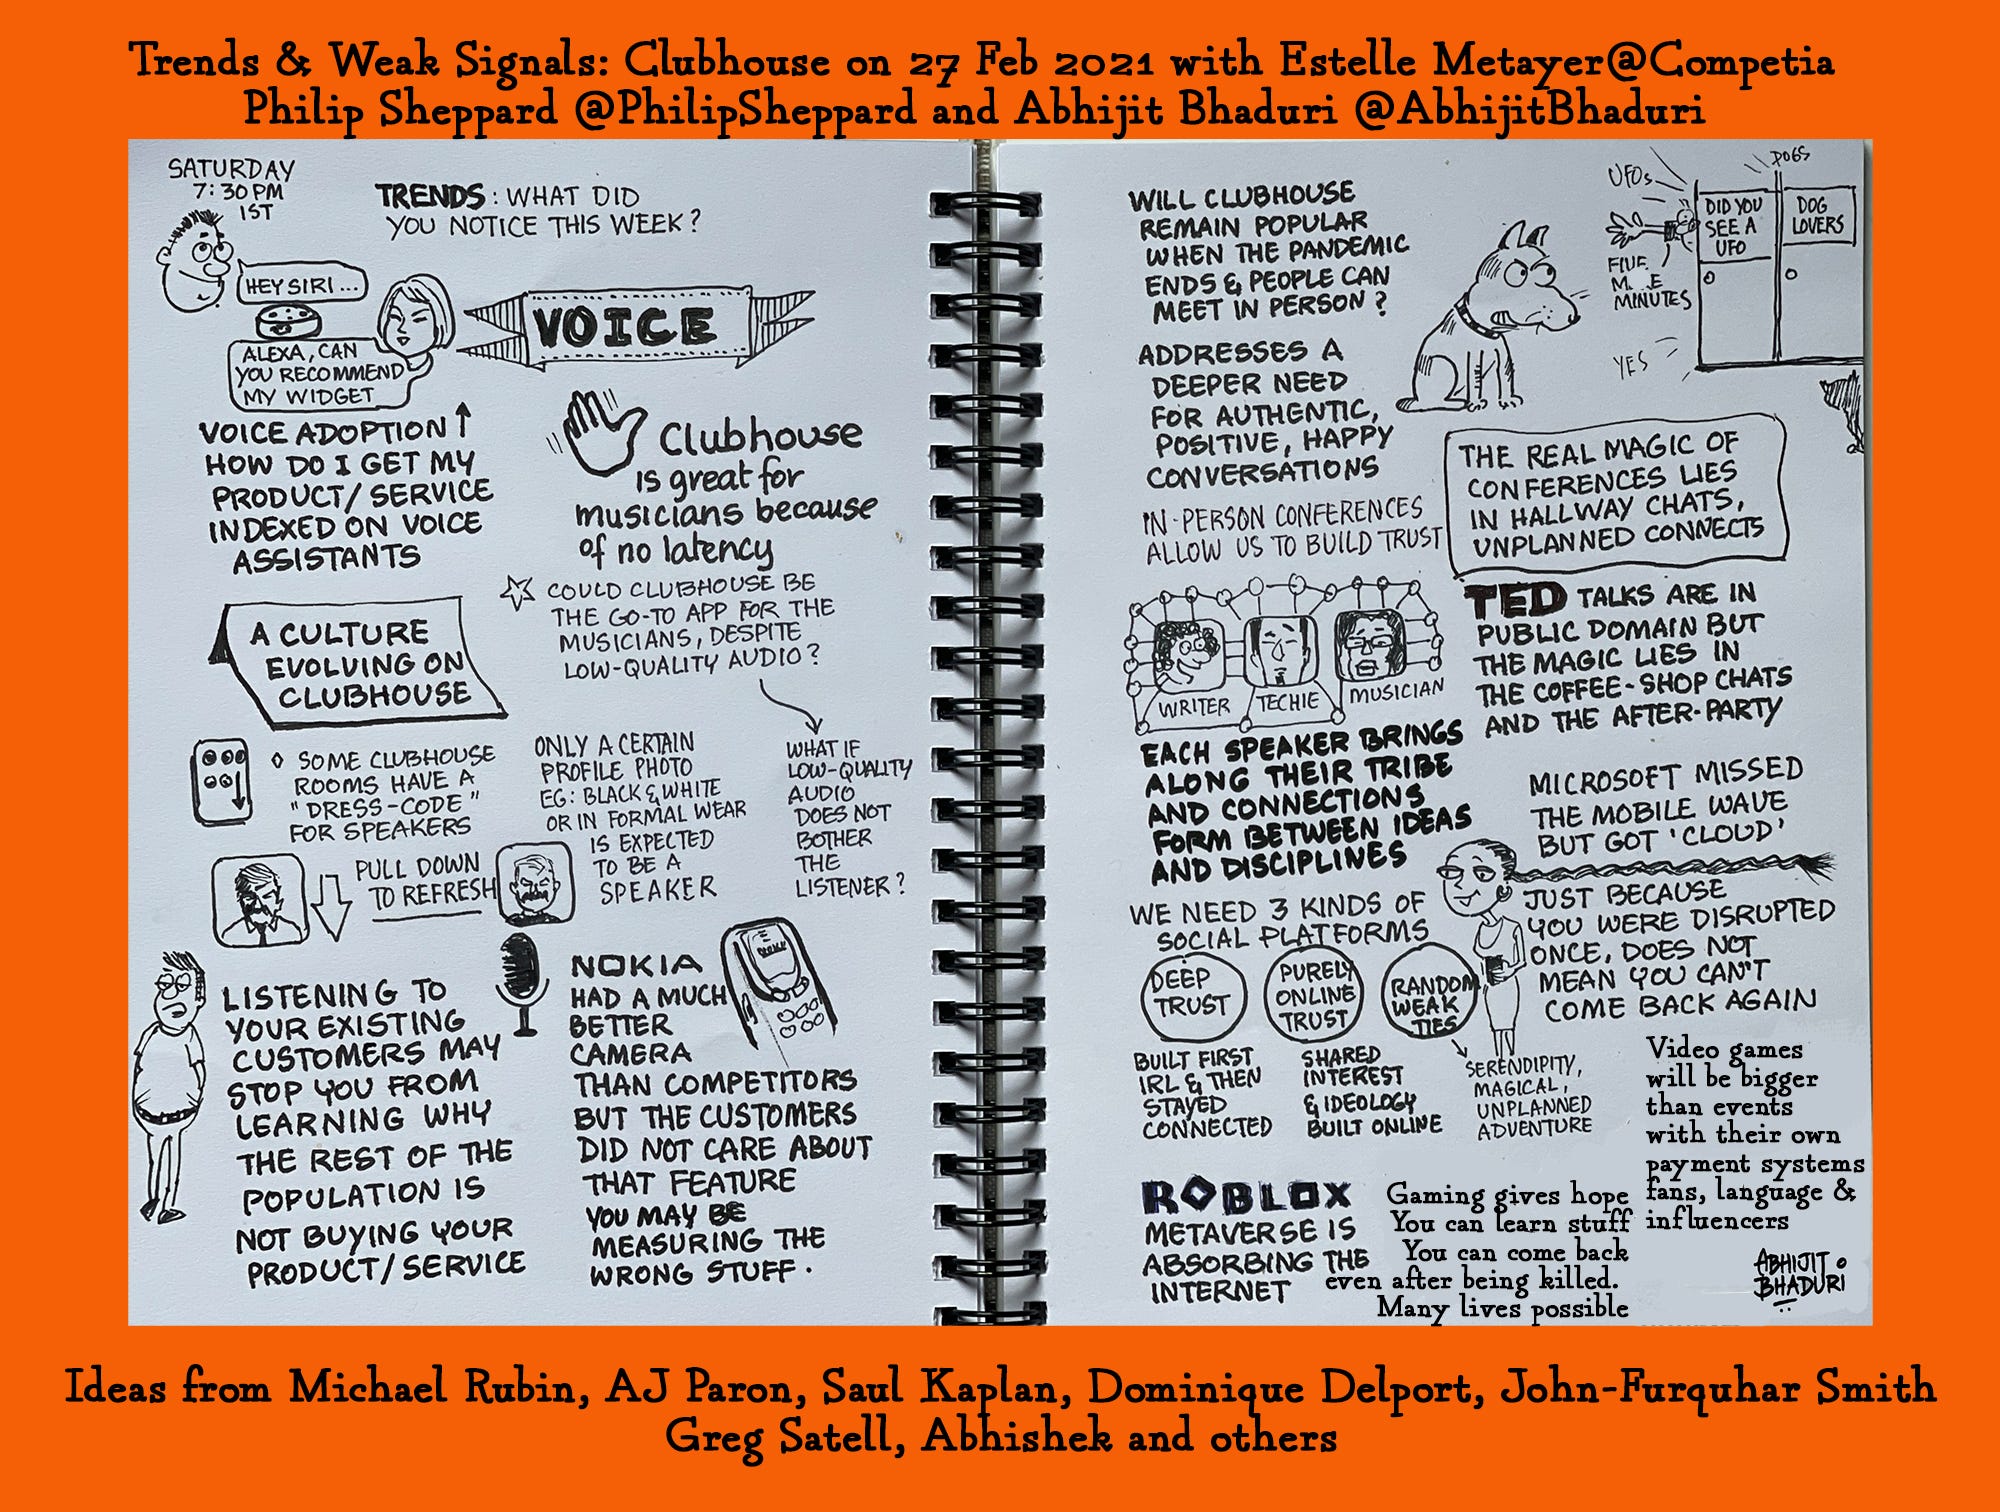 Trends & Weak Signals: Clubhouse on 27 Feb 2021 with Estelle Metayer@Competia
Philip Sheppard @PhilipSheppard and Abhijit Bhaduri @AbhijitBhaduri
SATURDAY
7:30 PM
IST
TRENDS: WHAT DID
YOU NOTICE THIS WEEK?
HEY SIRI ...
ALEXA, CAN
YOU RECOMMEND
MY WIDGET
VOICE
VOICE ADOPTION ↑
HOW DO I GET MY
PRODUCT/ SERVICE
INDEXED ON VOICE
ASSISTANTS
Clubhouse
is great for
musicians because
of no latency
COULD CLUBHOUSE BE
THE GO-TO APP FOR THE
MUSICIANS, DESPITE
LOW-QUALITY AUDIO?
A CULTURE
EVOLVING ON
CLUBHOUSE
◊ SOME CLUBHOUSE
ROOMS HAVE A
"DRESS-CODE"
FOR SPEAKERS
PULL DOWN
TO REFRESH
ONLY A CERTAIN
PROFILE PHOTO
EG: BLACK & WHITE
OR IN FORMAL WEAR
IS EXPECTED
TO BE A
SPEAKER
WHAT IF
LOW-QUALITY
AUDIO
DOES NOT
BOTHER
THE
LISTENER?
LISTENING TO
YOUR EXISTING
CUSTOMERS MAY
STOP YOU FROM
LEARNING WHY
THE REST OF THE
POPULATION IS
NOT BUYING YOUR
PRODUCT/ SERVICE
NOKIA
HAD A MUCH
BETTER
CAMERA
THAN COMPETITORS
BUT THE CUSTOMERS
DID NOT CARE ABOUT
THAT FEATURE
YOU MAY BE
MEASURING THE
WRONG STUFF.
WILL CLUBHOUSE
REMAIN POPULAR
WHEN THE PANDEMIC
ENDS & PEOPLE CAN
MEET IN PERSON?
ADDRESSES A
DEEPER NEED
FOR AUTHENTIC,
POSITIVE, HAPPY
CONVERSATIONS
UFOs
DOGS
DID YOU
SEE A
UFO
DOG
LOVERS
FIVE
MINUTES
YES
IN-PERSON CONFERENCES
ALLOW US TO BUILD TRUST
THE REAL MAGIC OF
CONFERENCES LIES
IN HALLWAY CHATS,
UNPLANNED CONNECTS
WRITER
TECHIE
MUSICIAN
EACH SPEAKER BRINGS
ALONG THEIR TRIBE
AND CONNECTIONS
FORM BETWEEN IDEAS
AND DISCIPLINES
TED TALKS ARE IN
PUBLIC DOMAIN BUT
THE MAGIC LIES IN
THE COFFEE-SHOP CHATS
AND THE AFTER-PARTY
MICROSOFT MISSED
THE MOBILE WAVE
BUT GOT 'CLOUD'
JUST BECAUSE
YOU WERE DISRUPTED
ONCE, DOES NOT
MEAN YOU CAN'T
COME BACK AGAIN
WE NEED 3 KINDS OF
SOCIAL PLATFORMS
DEEP
TRUST
PURELY
ONLINE
TRUST
RANDOM
WEAK
TIES
BUILT FIRST
IRL & THEN
STAYED
CONNECTED
SHARED
INTEREST
& IDEOLOGY
BUILT ONLINE
SERENDIPITY,
MAGICAL,
UNPLANNED
ADVENTURE
Video games
will be bigger
than events
with their own
payment systems
fans, language &
influencers
ROBLOX
METAVERSE IS
ABSORBING THE
INTERNET
Gaming gives hope
You can learn stuff
You can come back
even after being killed.
Many lives possible
ABHIJIT
BHADURI
Ideas from Michael Rubin, AJ Paron, Saul Kaplan, Dominique Delport, John-Furquhar Smith
Greg Satell, Abhishek and others